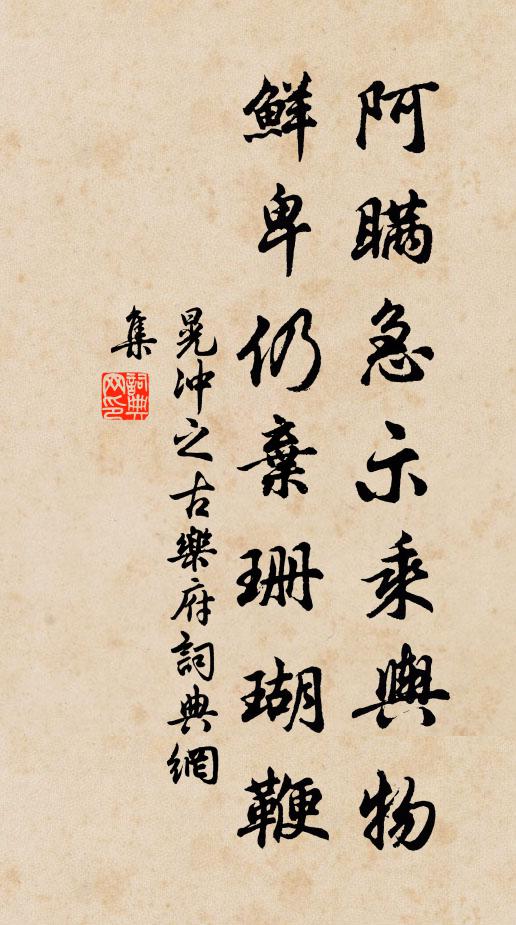 阿瞞急示乘輿物
鮮卑仍棄珊瑚鞭
晁冲之古樂府詞典網
集
詞典
网印